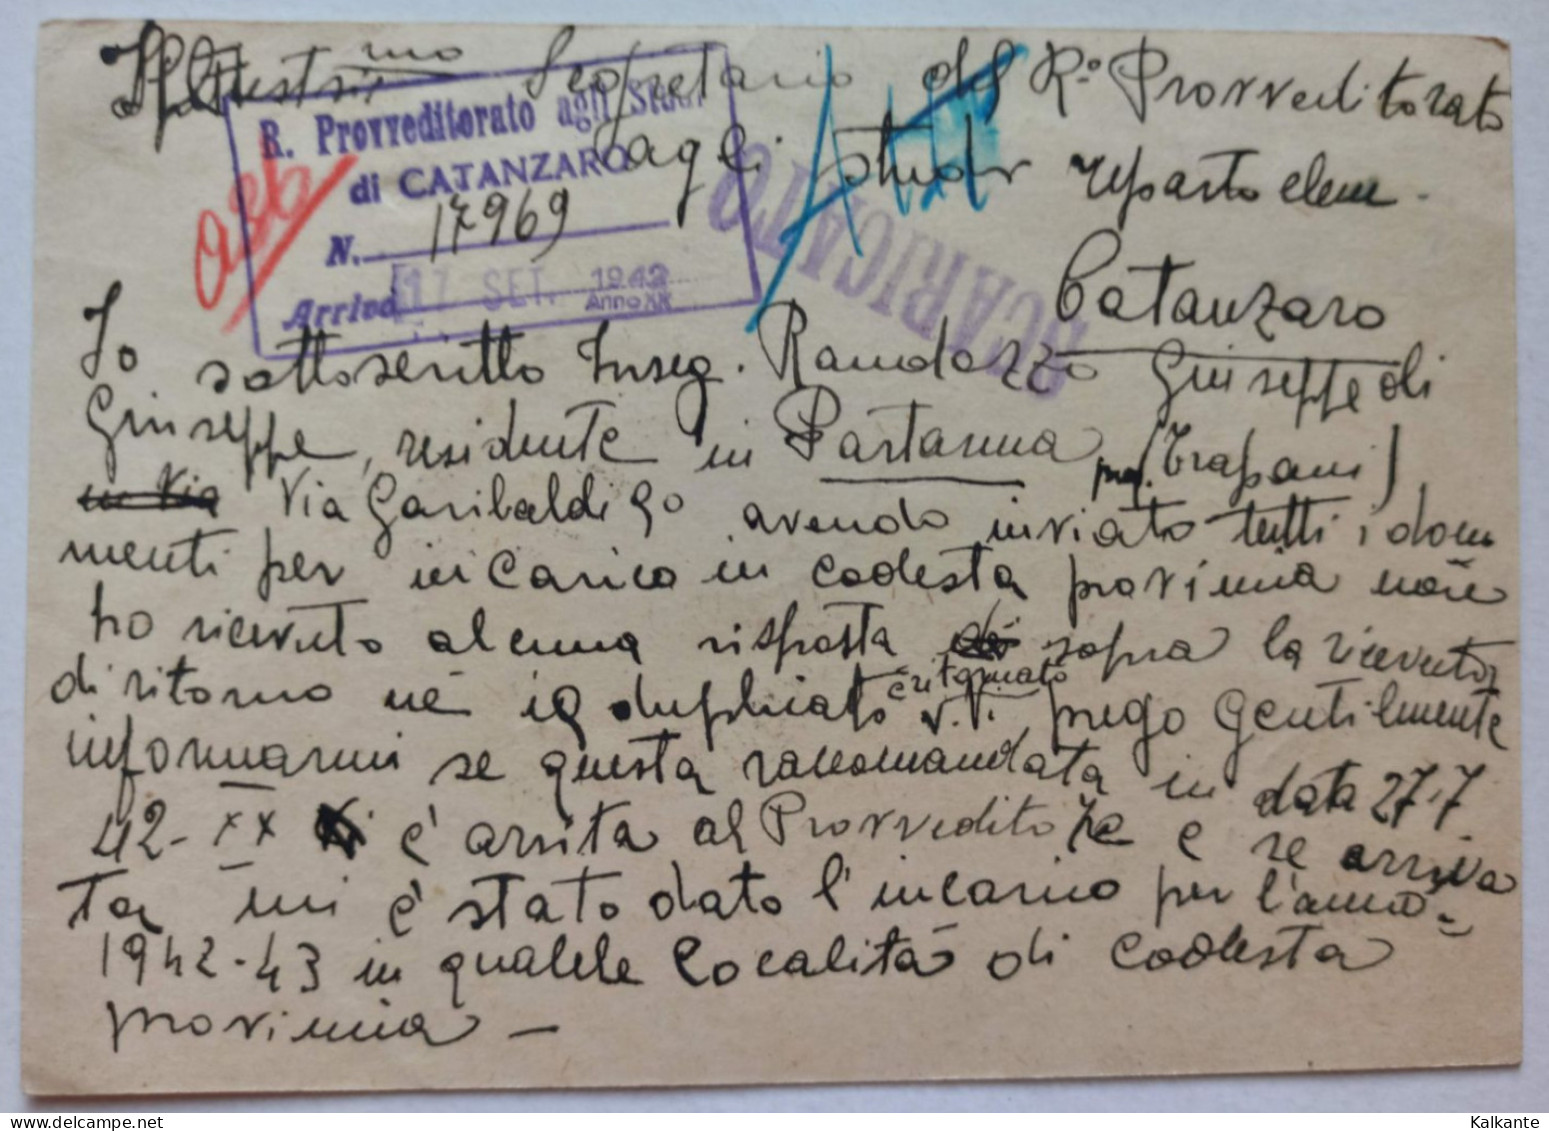 Illustrissimo Segretario del R.º Provveditorato
agli studi reparto elem.
R. Provveditorato agli Studi
di CATANZARO
N. 17969
Arrivo 17 SET. 1942
Anno XX
SCARICATO
Catanzaro
Io sottoscritto Inseg. Randazzo Giuseppe di
Giuseppe, residente in Partanna (Trapani)
in Via Via Garibaldi 90 avendo inviato tutti i docu
menti per incarico in codesta provincia non
ho ricevuto alcuna risposta sopra la ricevuta
di ritorno nè il duplicato v. p. prego gentilmente
informarmi se questa raccomandata in data 27.7.
42-XX è arrivata al Provveditore e se arriva
ta mi è stato dato l'incarico per l'anno
1942-43 in quale località di codesta
provincia —
Kalkante